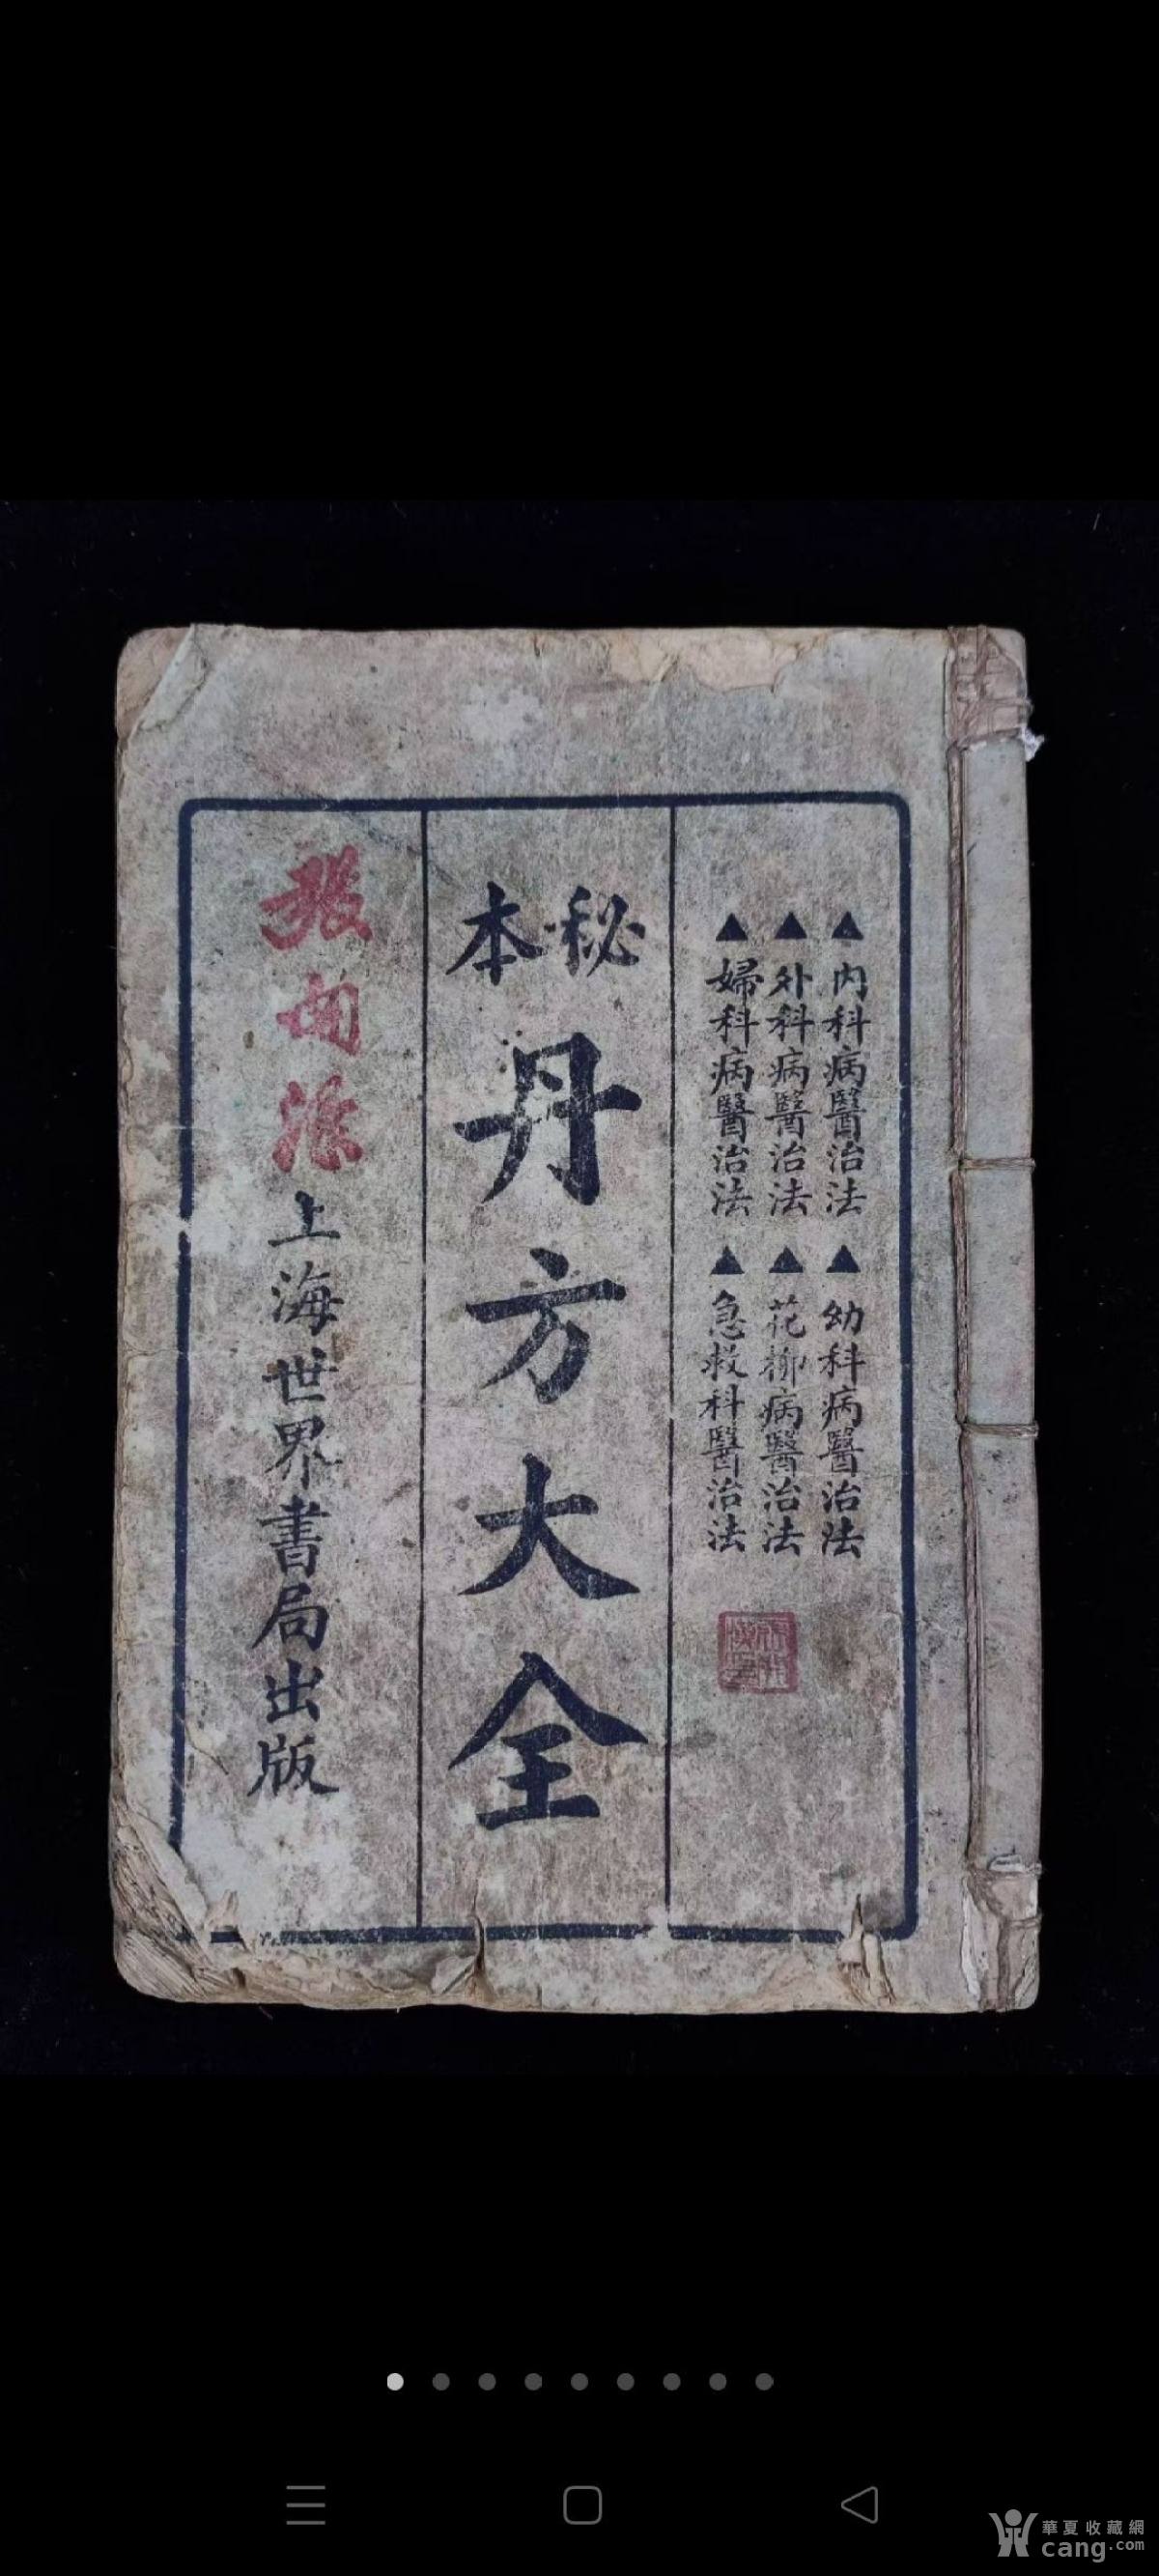 ▲内科病醫治法▲幼科病醫治法
▲外科病醫治法▲花柳病醫治法
▲婦科病醫治法▲急救科醫治法
秘本
丹方大全
上海世界書局出版
華夏收藏網
cang.com